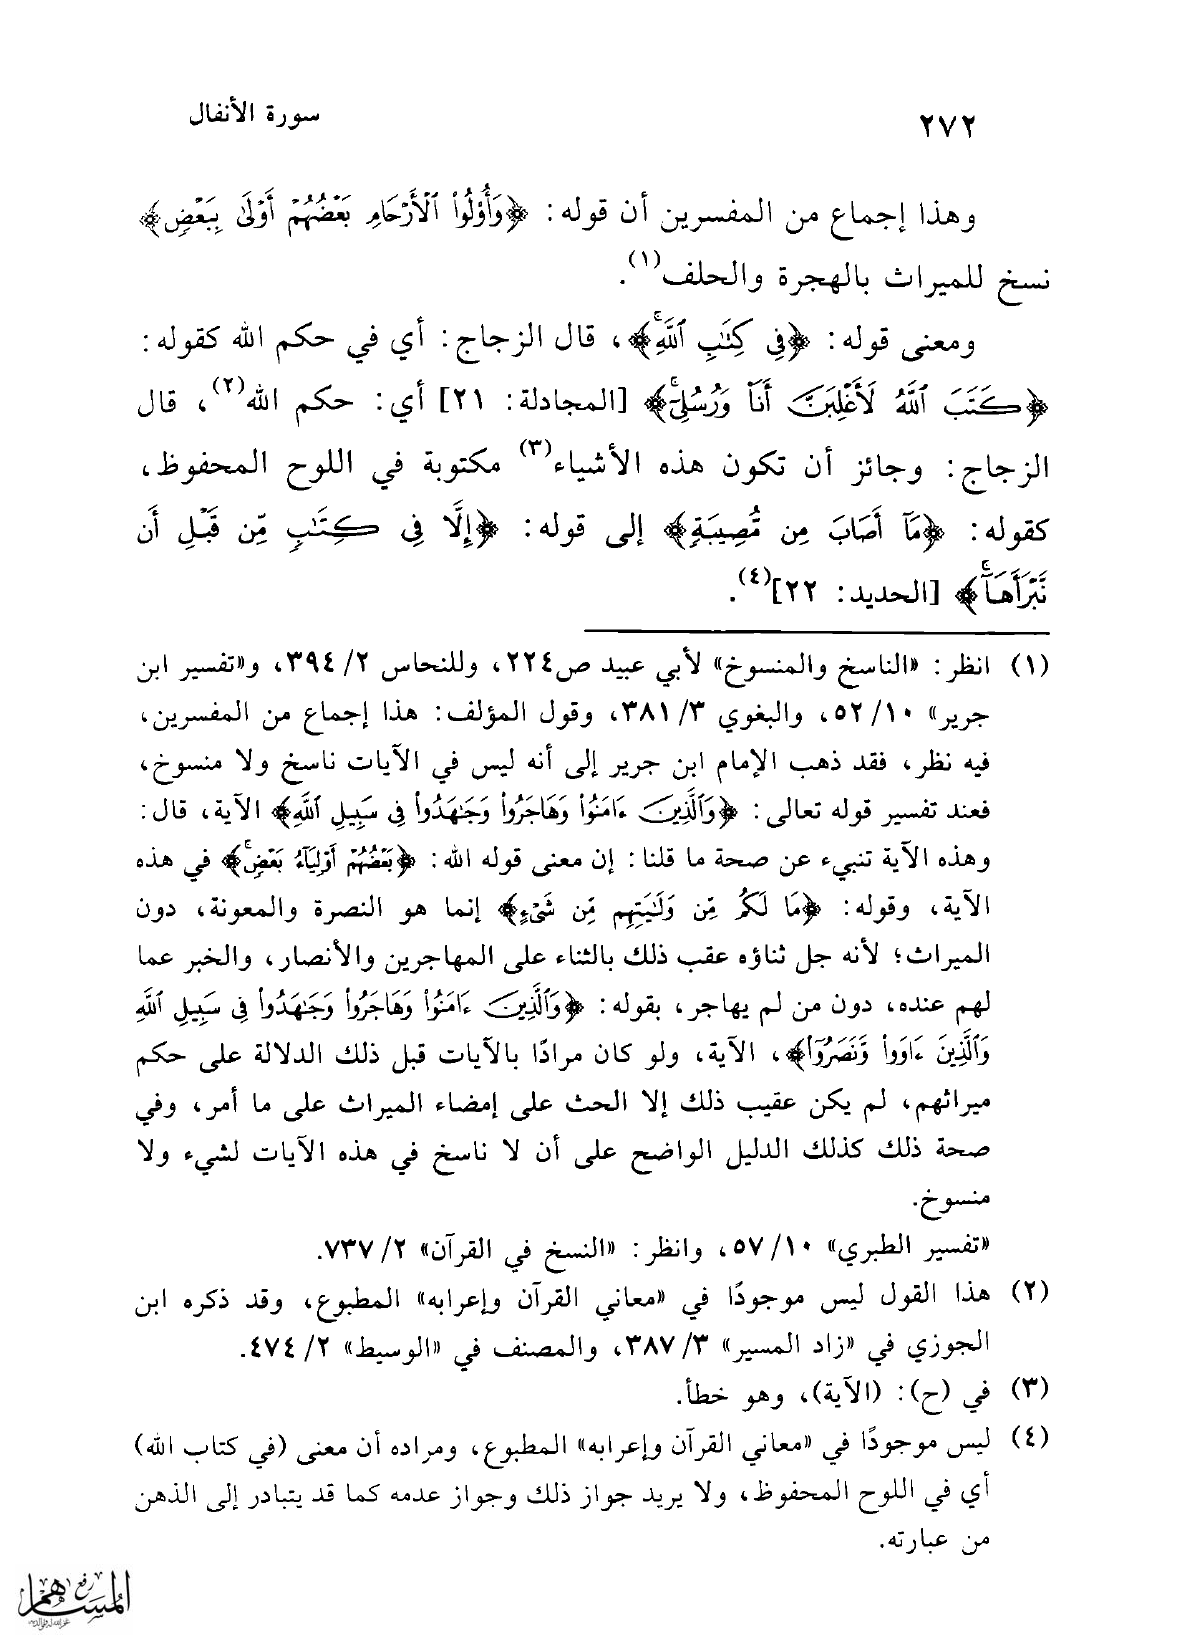 ٢٧٢
سورة الأنفال
وهذا إجماع من المفسرين أن قوله: ﴿وَأُوْلُواْ ٱلْأَرْحَامِ بَعْضُهُمْ أَوْلَىٰ بِبَعْضٍ﴾
نسخ للميراث بالهجرة والحلف(١).
ومعنى قوله: ﴿فِي كِتَٰبِ ٱللَّهِۚ﴾، قال الزجاج: أي في حكم الله كقوله:
﴿كَتَبَ ٱللَّهُ لَأَغْلِبَنَّ أَنَا۠ وَرُسُلِيٓۚ﴾ [المجادلة: ٢١] أي: حكم الله(٢)، قال
الزجاج: وجائز أن تكون هذه الأشياء(٣) مكتوبة في اللوح المحفوظ،
كقوله: ﴿مَآ أَصَابَ مِن مُّصِيبَةٍ﴾ إلى قوله: ﴿إِلَّا فِي كِتَٰبٍ مِّن قَبْلِ أَن
نَّبْرَأَهَآۚ﴾ [الحديد: ٢٢](٤).
(١) انظر: «الناسخ والمنسوخ» لأبي عبيد ص٢٢٤، وللنحاس ٢/ ٣٩٤، و«تفسير ابن
جرير» ١٠/ ٥٢، والبغوي ٣/ ٣٨١، وقول المؤلف: هذا إجماع من المفسرين،
فيه نظر، فقد ذهب الإمام ابن جرير إلى أنه ليس في الآيات ناسخ ولا منسوخ،
فعند تفسير قوله تعالى: ﴿وَٱلَّذِينَ ءَامَنُواْ وَهَاجَرُواْ وَجَٰهَدُواْ فِي سَبِيلِ ٱللَّهِ﴾ الآية، قال:
وهذه الآية تنبيء عن صحة ما قلنا: إن معنى قوله الله: ﴿بَعْضُهُمْ أَوْلِيَآءُ بَعْضٍۚ﴾ في هذه
الآية، وقوله: ﴿مَا لَكُم مِّن وَلَٰيَتِهِم مِّن شَيْءٍ﴾ إنما هو النصرة والمعونة، دون
الميراث؛ لأنه جل ثناؤه عقب ذلك بالثناء على المهاجرين والأنصار، والخبر عما
لهم عنده، دون من لم يهاجر، بقوله: ﴿وَٱلَّذِينَ ءَامَنُواْ وَهَاجَرُواْ وَجَٰهَدُواْ فِي سَبِيلِ ٱللَّهِ
وَٱلَّذِينَ ءَاوَواْ وَّنَصَرُوٓاْ﴾، الآية، ولو كان مرادًا بالآيات قبل ذلك الدلالة على حكم
ميراثهم، لم يكن عقيب ذلك إلا الحث على إمضاء الميراث على ما أمر، وفي
صحة ذلك كذلك الدليل الواضح على أن لا ناسخ في هذه الآيات لشيء ولا
منسوخ.
«تفسير الطبري» ١٠/ ٥٧، وانظر: «النسخ في القرآن» ٢/ ٧٣٧.
(٢) هذا القول ليس موجودًا في «معاني القرآن وإعرابه» المطبوع، وقد ذكره ابن
الجوزي في «زاد المسير» ٣/ ٣٨٧، والمصنف في «الوسيط» ٢/ ٤٧٤.
(٣) في (ح): (الآية)، وهو خطأ.
(٤) ليس موجودًا في «معاني القرآن وإعرابه» المطبوع، ومراده أن معنى (في كتاب الله)
أي في اللوح المحفوظ، ولا يريد جواز ذلك وجواز عدمه كما قد يتبادر إلى الذهن
من عبارته.
رفع
المساهم